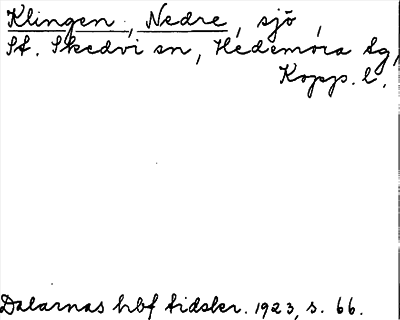 Klingen, Nedre, sjö,
St. Skedvi sn, Hedemora tg,
Kopp. l.
Dalarnas hbf tidskr. 1923, s. 66.